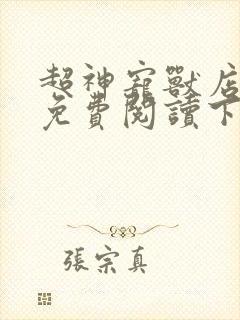 超神寵獸店
免費閱讀下
張宗真